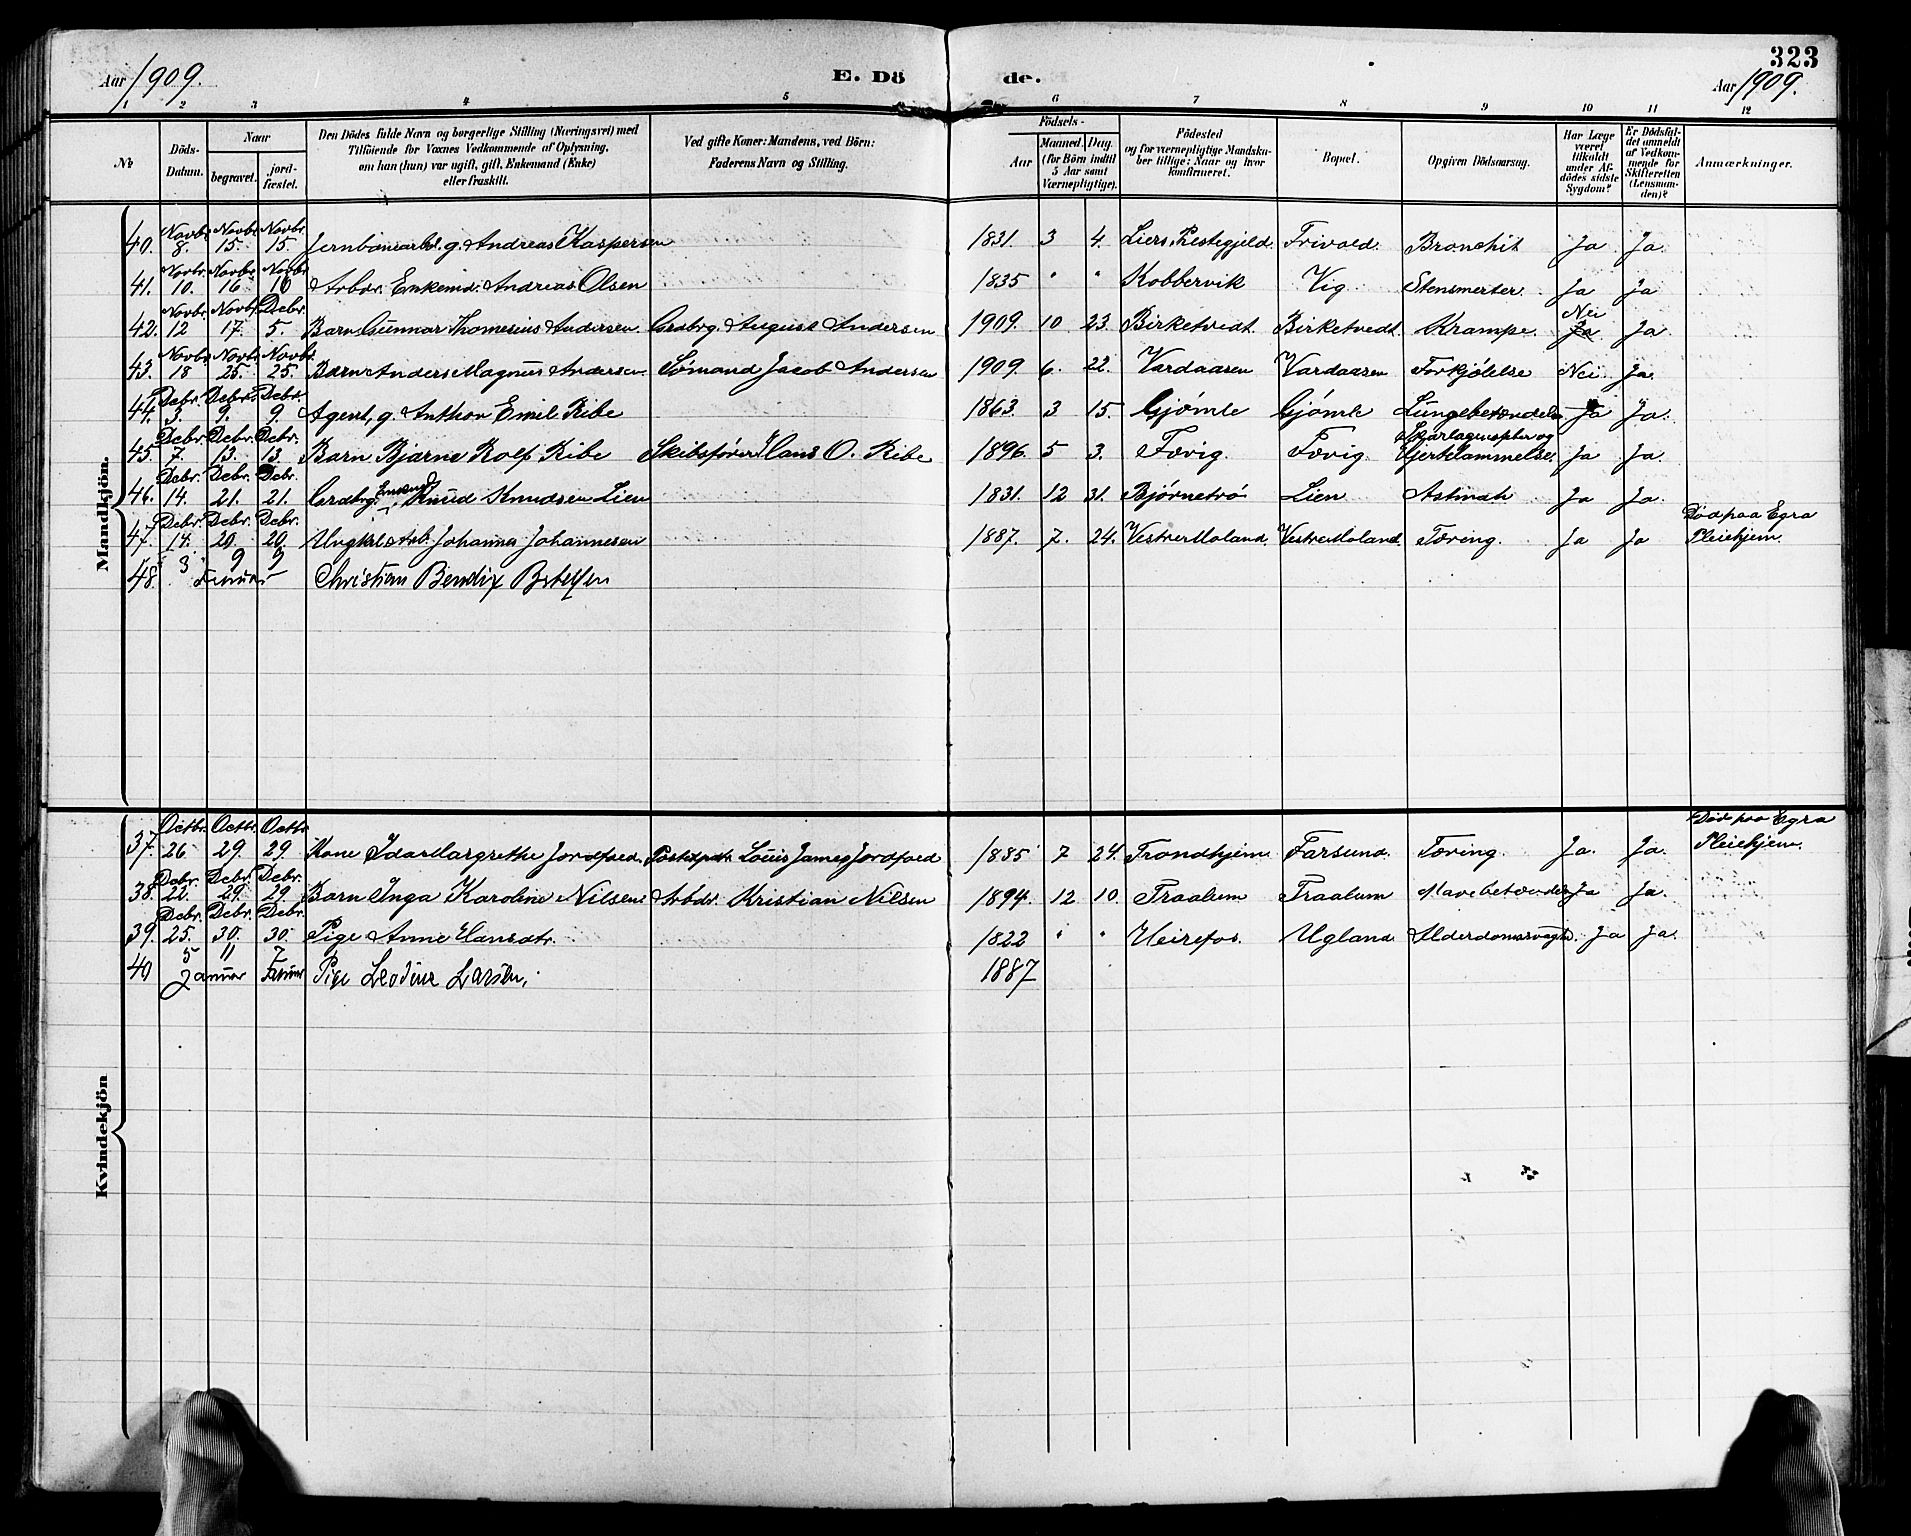 323
Aar 1909. E. Dö de. Aar 1909.
1 2 3 4 5 6 7 8 9 10 11 12
No Döds-Datum. Naar begravet. jord-fæstet. Den Dödes fulde Navn og borgerlige Stilling (Næringsvei) med Tilföiende for Voxnes Vedkommende af Oplysning, om han (hun) var ugift, gift, Enkemand (Enke) eller fraskilt. Ved gifte Koner: Mandens, ved Börn: Faderens Navn og Stilling. Födsels- Aar Maaned. Dag. (for Börn indtil 5 Aar samt Værnepligtige). Födested og for værnepligtige Mandskaber tillige: Naar og hvor konfirmeret. Bopæl. Opgiven Dödsaarsag. Har Læge været tilkaldt under Afdödes sidste Sygdom? Er Dödsfaldet anmeldt af Vedkommende for Skifteretten (Lensmanden)? Anmærkninger.
Mandkjön.
40. Novbr. 8. Novbr. 15. Novbr. 15. Jernbanearbd. g. Andreas Kaspersen 1831. 3 4. Liers Prestegjeld. Frivold. Bronchit Ja Ja.
41. Novbr. 10. Novbr. 16 Novbr. 16 Arbdr. Enkemd. Andreas Olsen 1835 " " Kobbervik Vig Stensmerter. Ja Ja
42. Novbr. 12 Novbr. 17. Debr. 5. Barn Gunnar Thomesius Andersen Grdbrg. August Andersen 1909. 10 23. Birketvedt. Birketvedt. Krampe. Nei Ja Ja.
43. Novbr. 18 Novbr. 25. Novbr. 25. Barn Anders Magnus Andersen Sømand Jacob Andersen 1909. 6. 22. Vardaasen Vardaasen Forkjølelse Nei. Ja.
44. Debr. 3. Debr. 9. Debr. 9. Agent, g. Anthon Emil Ribe 1863. 3 15. Gjømle Gjømle Lungebetændelse Ja Ja.
45. Debr. 7. Debr. 13. Debr. 13. Barn Bjarne Rolf Ribe Skibsfører Hans O. Ribe 1896. 5 3. Fævig. Fævig. Skarlagensfeber og Hjertelammelse. Ja Ja.
46. Debr. 14. Debr. 21. Debr. 21. Grdbrg. Enkemd. Knud Knudsen Lien 1831. 12 31. Bjørnetrø Lien Astmah Ja Ja.
47. Debr. 14. Debr. 20. Debr. 20. Ungkl. Arb. Johannes Johannesen 1887. 7. 24. Vestre Moland. Vestre Moland. Tæring. Ja Ja Død paa Egra Pleiehjem.
48. 3 9 9 Christian Bendix
Kvindekjön
37. Octbr. 26 Octbr. 29. Octbr. 29. Kone Ida Margrethe 1885 7 24. Trondhjem Farsund. Tæring. Ja. Ja. Død paa Egra Pleiehjem.
38. Debr. 22. Debr. 29. Debr. 29. Barn Inga Karoline Nilsen Arbdr. Kristian Nilsen 1894. 12 10. Traalum Traalum Mavebetændelse Ja Ja.
39. Debr. 25. Debr. 30. Debr. 30. Pige Anne Hansdtr. 1822 " " Heirefos. Ugland Alderdomssvaghd. Ja Ja.
40 5 11 7 Januar Pige Larsen, 1887